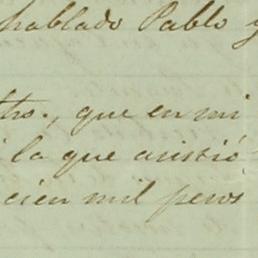 hablado Pablo y
tho., que en mi
la que asistió
cien mil pesos